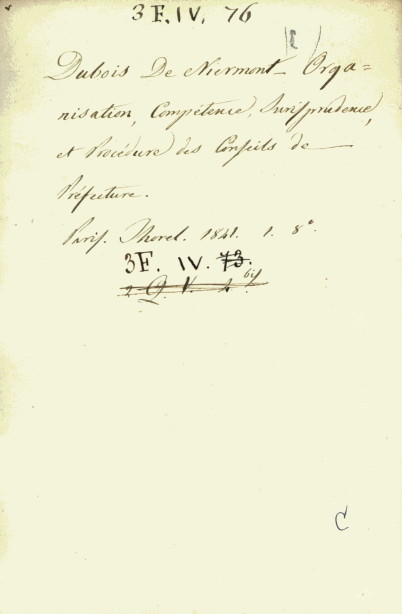 3 F. IV. 76
Dubois De Niermont - Orga=
nisation, Compétence, Jurisprudence,
et Procédure des Conseils de
Préfecture.
Paris. Thorel. 1841. 1. 8°.
3 F. IV. 73.
2 Q. V. 4 bis
C